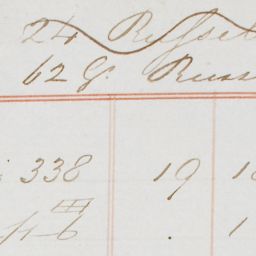 24 Russel
62 G. Russ
338 19 1
6 . 1